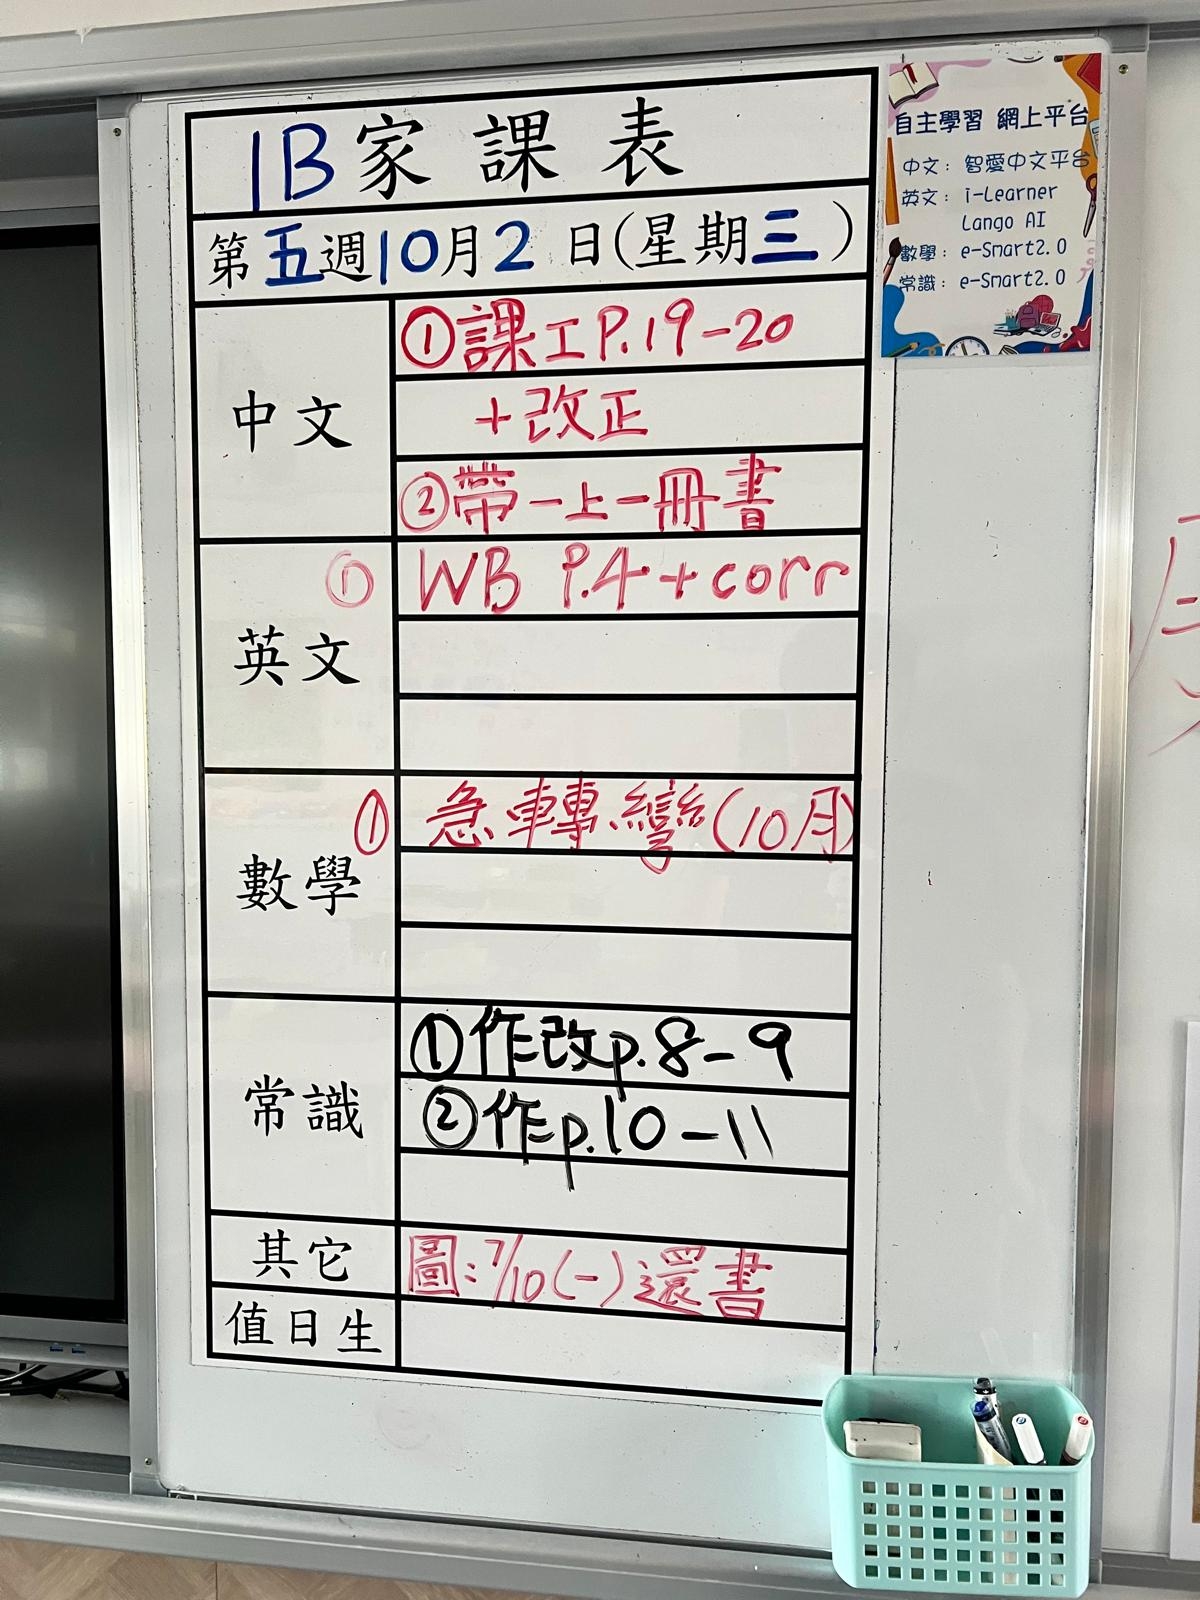 1B家課表
第五週10月2日(星期三)
中文
①課工P.19-20
+改正
②帶一上一冊書
英文
① WB P.4+corr
數學
① 急轉彎(10月)
常識
①作改p.8-9
②作p.10-11
其它
圖:7/10(一)還書
值日生
自主學習 網上平台
中文: 智愛中文平台
英文: i-Learner
Lango AI
數學: e-Smart2.0
常識: e-Smart2.0